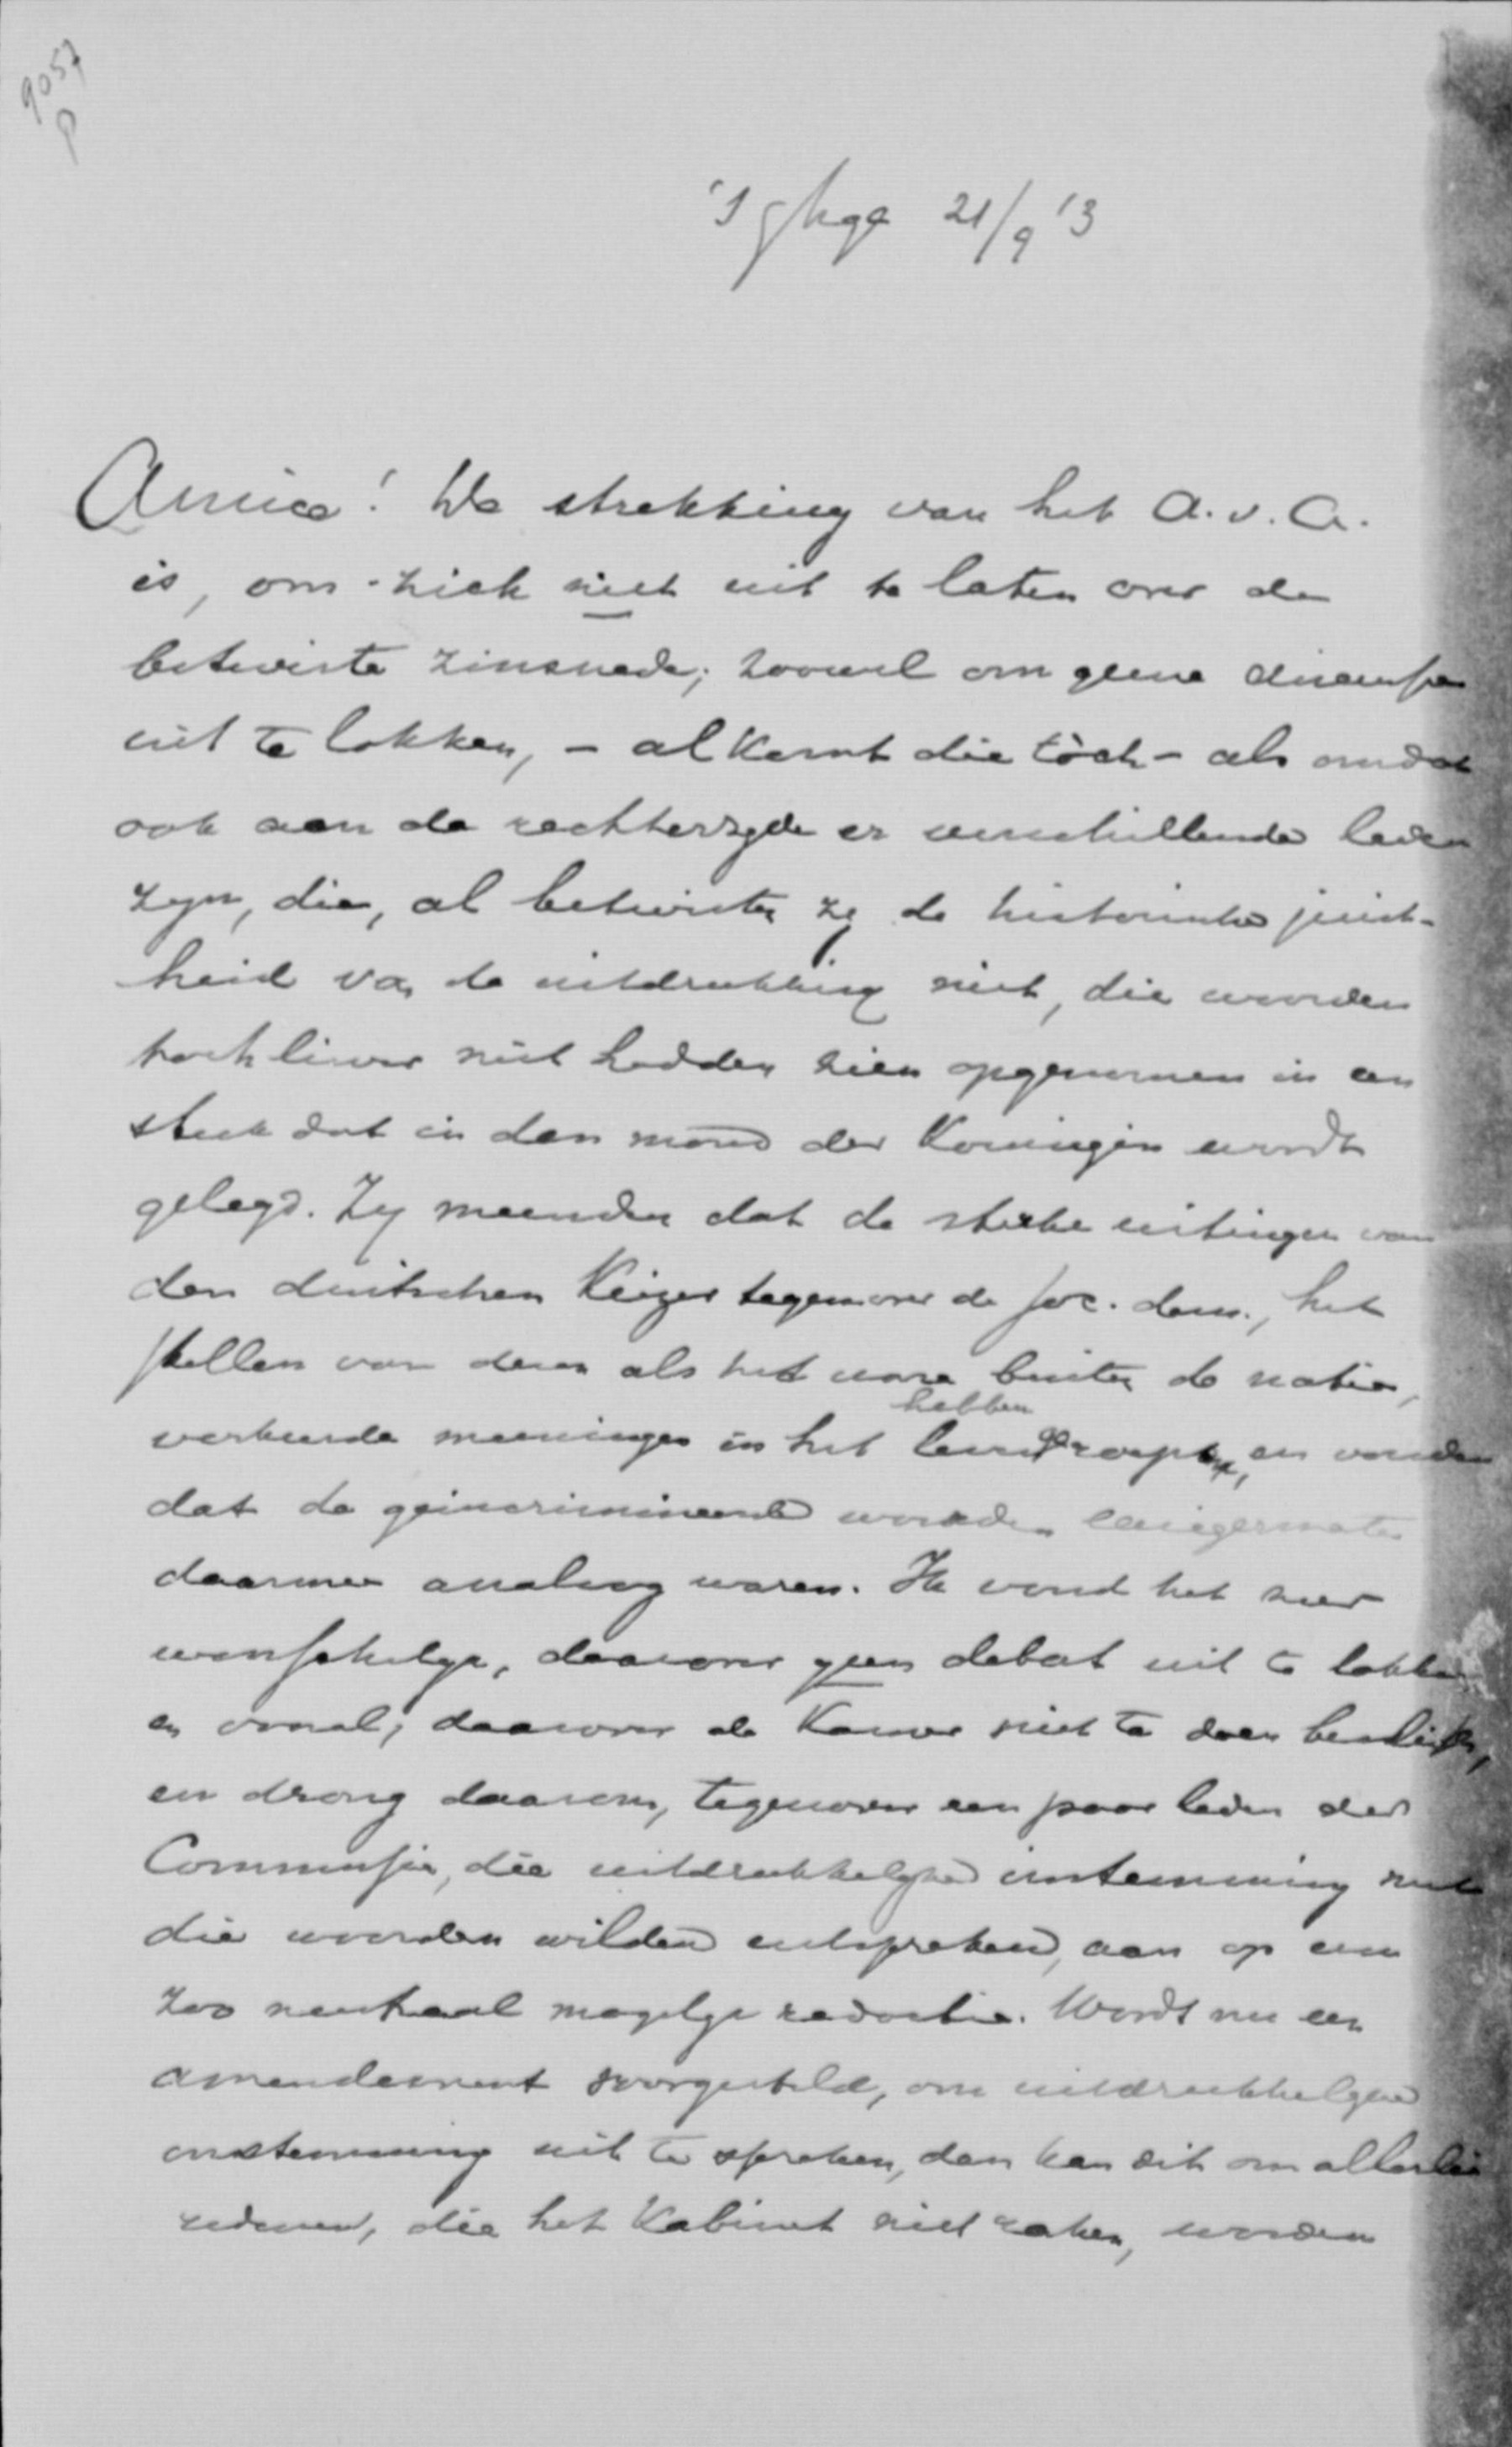 9057
P
's Ghge 21/9 '13
Amice! De strekking van het A.v.A.
is, om zich niet uit te laten over de
betwiste zinsnede; zoowel om geene discussie
uit te lokken, - al komt die tòch - als omdat
ook aan de rechterzyde er verschillende leden
zyn, die, al betwisten zy de historische juist-
heid van de uitdrukking niet, die woorden
toch liever niet hadden zien opgenomen in een
stuk dat in den mond der Koningin wordt
gelegd. Zy meenden dat de sterke uitingen van
den duitschen Keizer tegenover de soc. dem., het
stellen van dezen als het ware buiten de natie,
verkeerde meeningen in het leven hebben geroepen, en vonden
dat de geincrimineerde woorden eenigermate
daarmee analoog waren. Ik vond het zeer
wenschelyk, daarover geen debat uit te lokken
en vooral, daarover de Kamer niet te doen beslissen,
en drong daarom, tegenover een paar leden der
Commissie, die uitdrukkelyke instemming met
die woorden wilden uitspreken, aan op eene
zoo neutraal mogelyke redactie. Wordt nu een
amendement voorgesteld, om uitdrukkelyke
instemming uit te spreken, dan kan dit om allerlei
redenen, die het Kabinet niet raken, worden